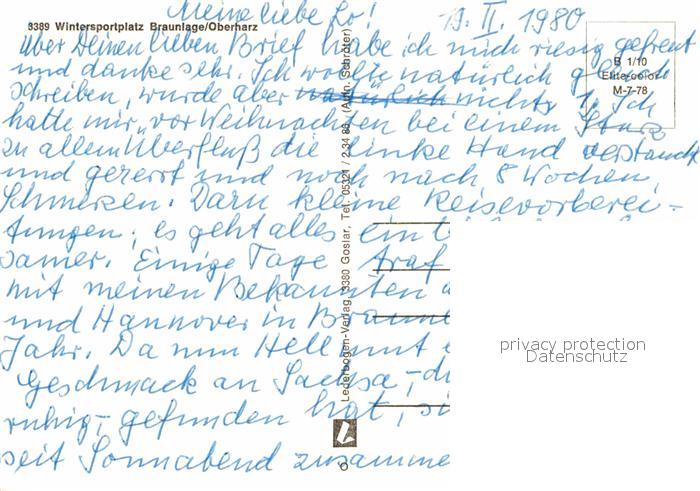 Meine liebe Lo! 19. II. 1980
8389 Wintersportplatz Braunlage/Oberharz
über Deinen lieben Brief habe ich mich riesig gefreut
und danke sehr. Ich wollte natürlich gleich
schreiben, wurde aber natürlich nichts, 1. Ich
hatte mir vor Weihnachten bei einem Sturz
zu allem Überfluß die linke Hand verstaucht
und gezerrt und noch nach 8 Wochen
Schmerzen. Dazu kleine Reisevorberei-
tungen; es geht alles ein
samer. Einige Tage traf
mit meinen Bekannten
und Hannover in Braunl
Jahr. Da nun Hellmut
Geschmack an Sachsa -, d
ruhig -, gefunden hat, si
seit Sonnabend zusamme
B 1/10
Elite-color
M-7-78
Lederbogen-Verlag, 3380 Goslar, Tel. 05321 / 2 34 80 (Aufn. Schröter)
privacy protection
Datenschutz